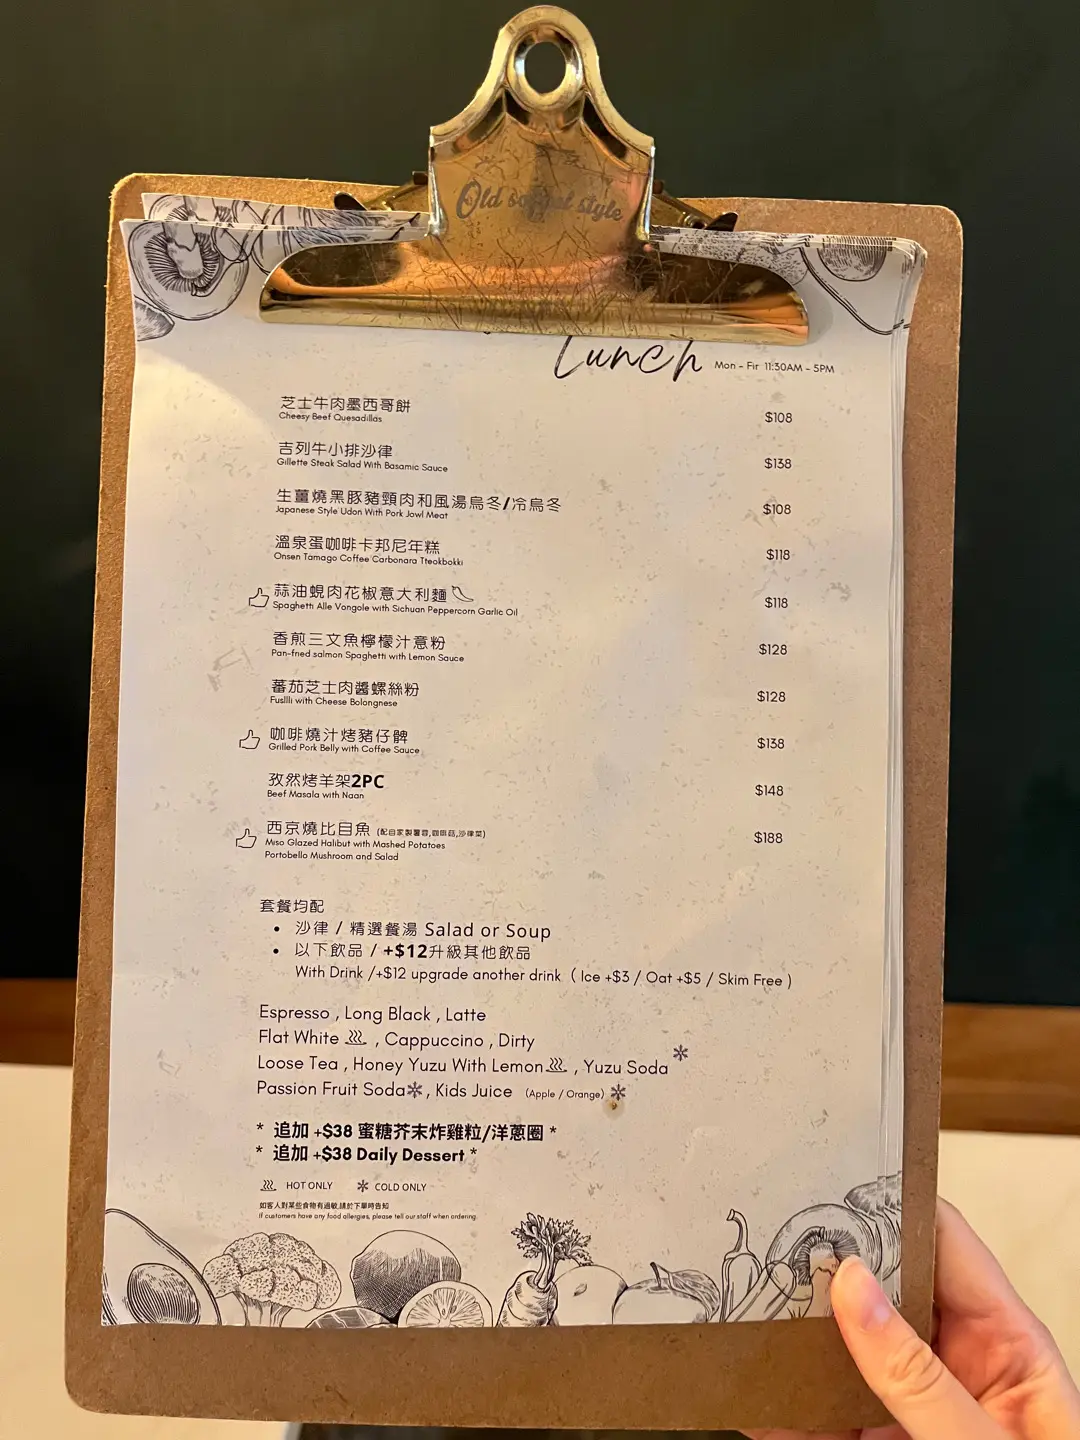 Old school style
Lunch Mon - Fir 11:30AM - 5PM
芝士牛肉墨西哥餅
Cheesy Beef Quesadillas $108
吉列牛小排沙律
Gillette Steak Salad With Basamic Sauce $138
生薑燒黑豚豬頸肉和風湯烏冬/冷烏冬
Japanese Style Udon With Pork Jowl Meat $108
溫泉蛋咖啡卡邦尼年糕
Onsen Tamago Coffee Carbonara Tteokbokki $118
蒜油蜆肉花椒意大利麵
Spaghetti Alle Vongole with Sichuan Peppercorn Garlic Oil $118
香煎三文魚檸檬汁意粉
Pan-fried salmon Spaghetti with Lemon Sauce $128
蕃茄芝士肉醬螺絲粉
Fusilli with Cheese Bolongnese $128
咖啡燒汁烤豬仔髀
Grilled Pork Belly with Coffee Sauce $138
孜然烤羊架2PC
Beef Masala with Naan $148
西京燒比目魚 (配自家製薯蓉,咖啡菇,沙律菜)
Miso Glazed Halibut with Mashed Potatoes $188
Portobello Mushroom and Salad
套餐均配
• 沙律 / 精選餐湯 Salad or Soup
• 以下飲品 / +$12升級其他飲品
With Drink /+$12 upgrade another drink ( Ice +$3 / Oat +$5 / Skim Free )
Espresso , Long Black , Latte
Flat White , Cappuccino , Dirty
Loose Tea , Honey Yuzu With Lemon , Yuzu Soda
Passion Fruit Soda , Kids Juice (Apple / Orange)
* 追加 +$38 蜜糖芥末炸雞粒/洋蔥圈 *
* 追加 +$38 Daily Dessert *
HOT ONLY COLD ONLY
如客人對某些食物有過敏,請於下單時告知
If customers have any food allergies, please tell our staff when ordering.